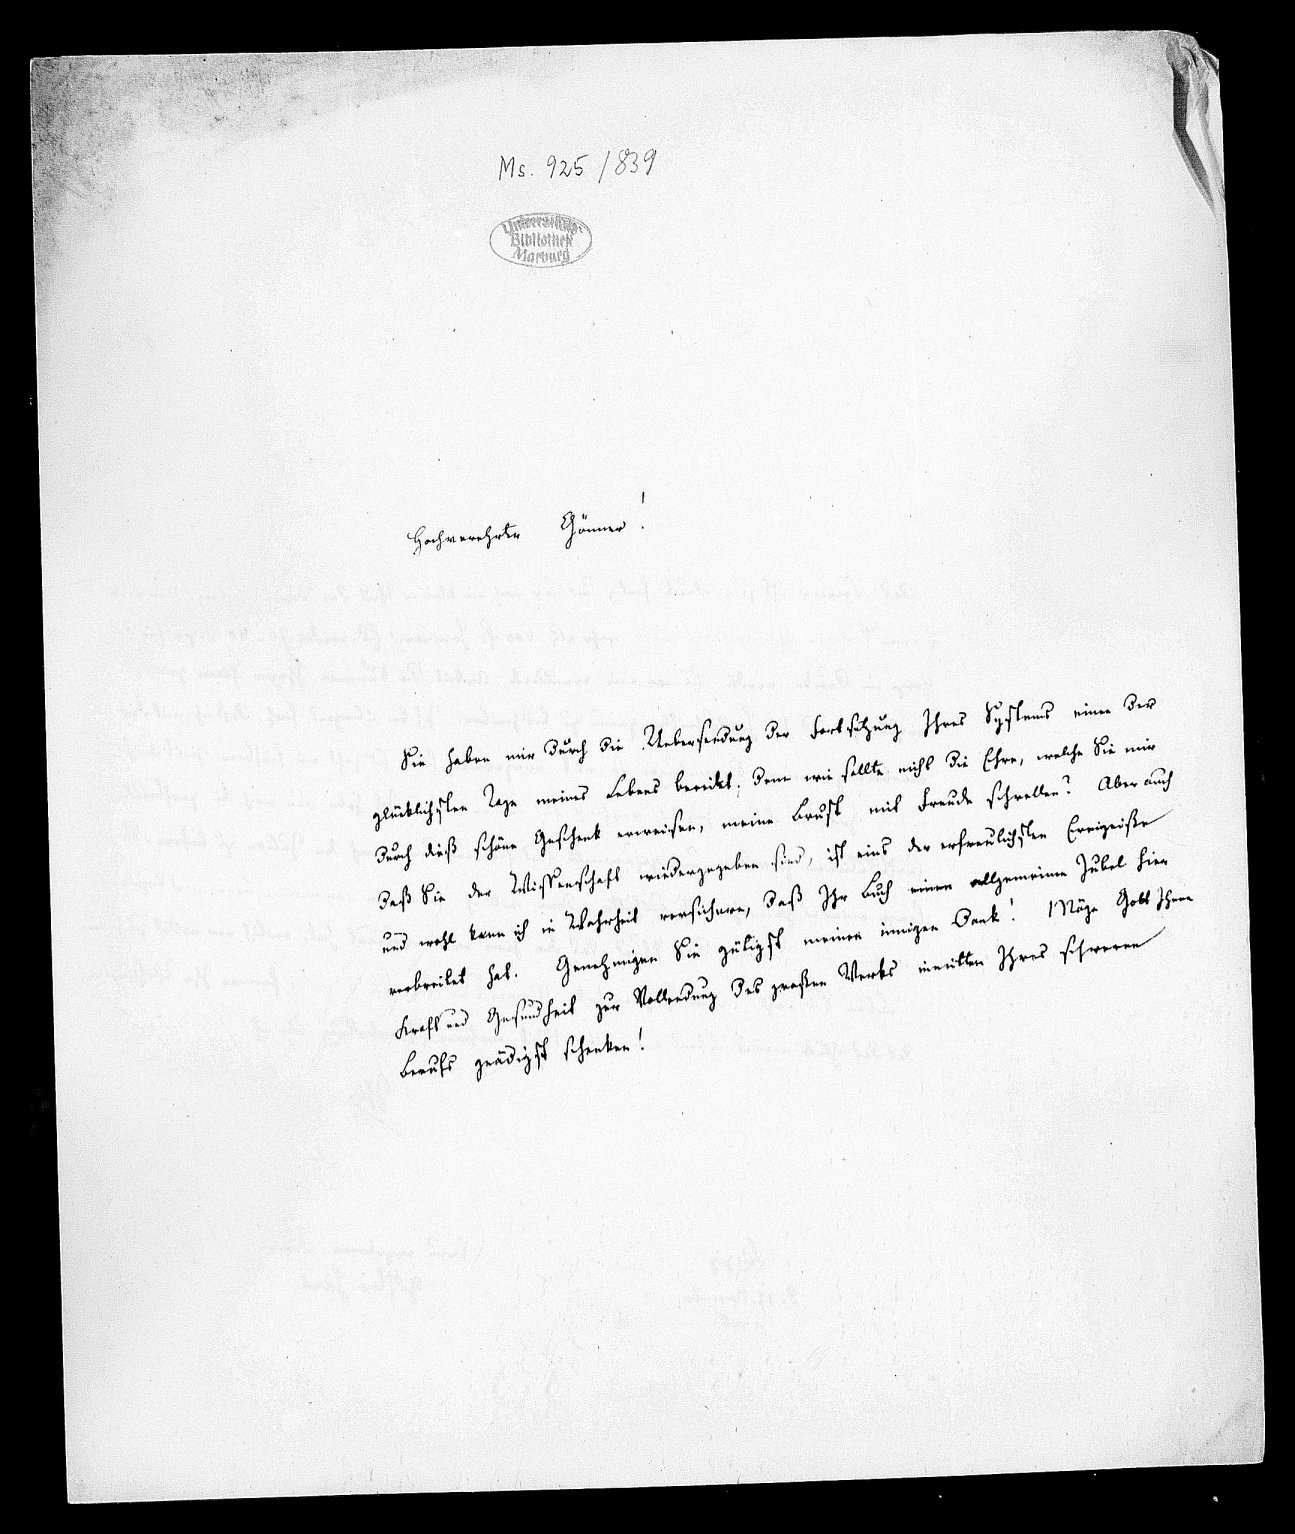 Ms. 925/839
Universitäts-
Bibliothek
Marburg
Hochverehrter Gönner!
Sie haben mir durch die Uebersendung der Fortsetzung Ihres Systems einen der
glücklichsten Tage meines Lebens bereitet; denn wie sollte nicht die Ehre, welche Sie mir
durch dieß schöne Geschenk erweisen, meine Brust mit Freude schwellen? Aber auch
daß Sie der Wissenschaft wiedergegeben sind, ist eins der erfreulichsten Ereigniße
und wohl kann ich in Wahrheit versichern, daß Ihr Buch einen allgemeinen Jubel hier
verbreitet hat. Genehmigen Sie gütigst meinen innigen Dank! Möge Gott Ihnen
Kraft und Gesundheit zur Vollendung des großen Werks inmitten Ihres schweren
Berufs gnädigst schenken!